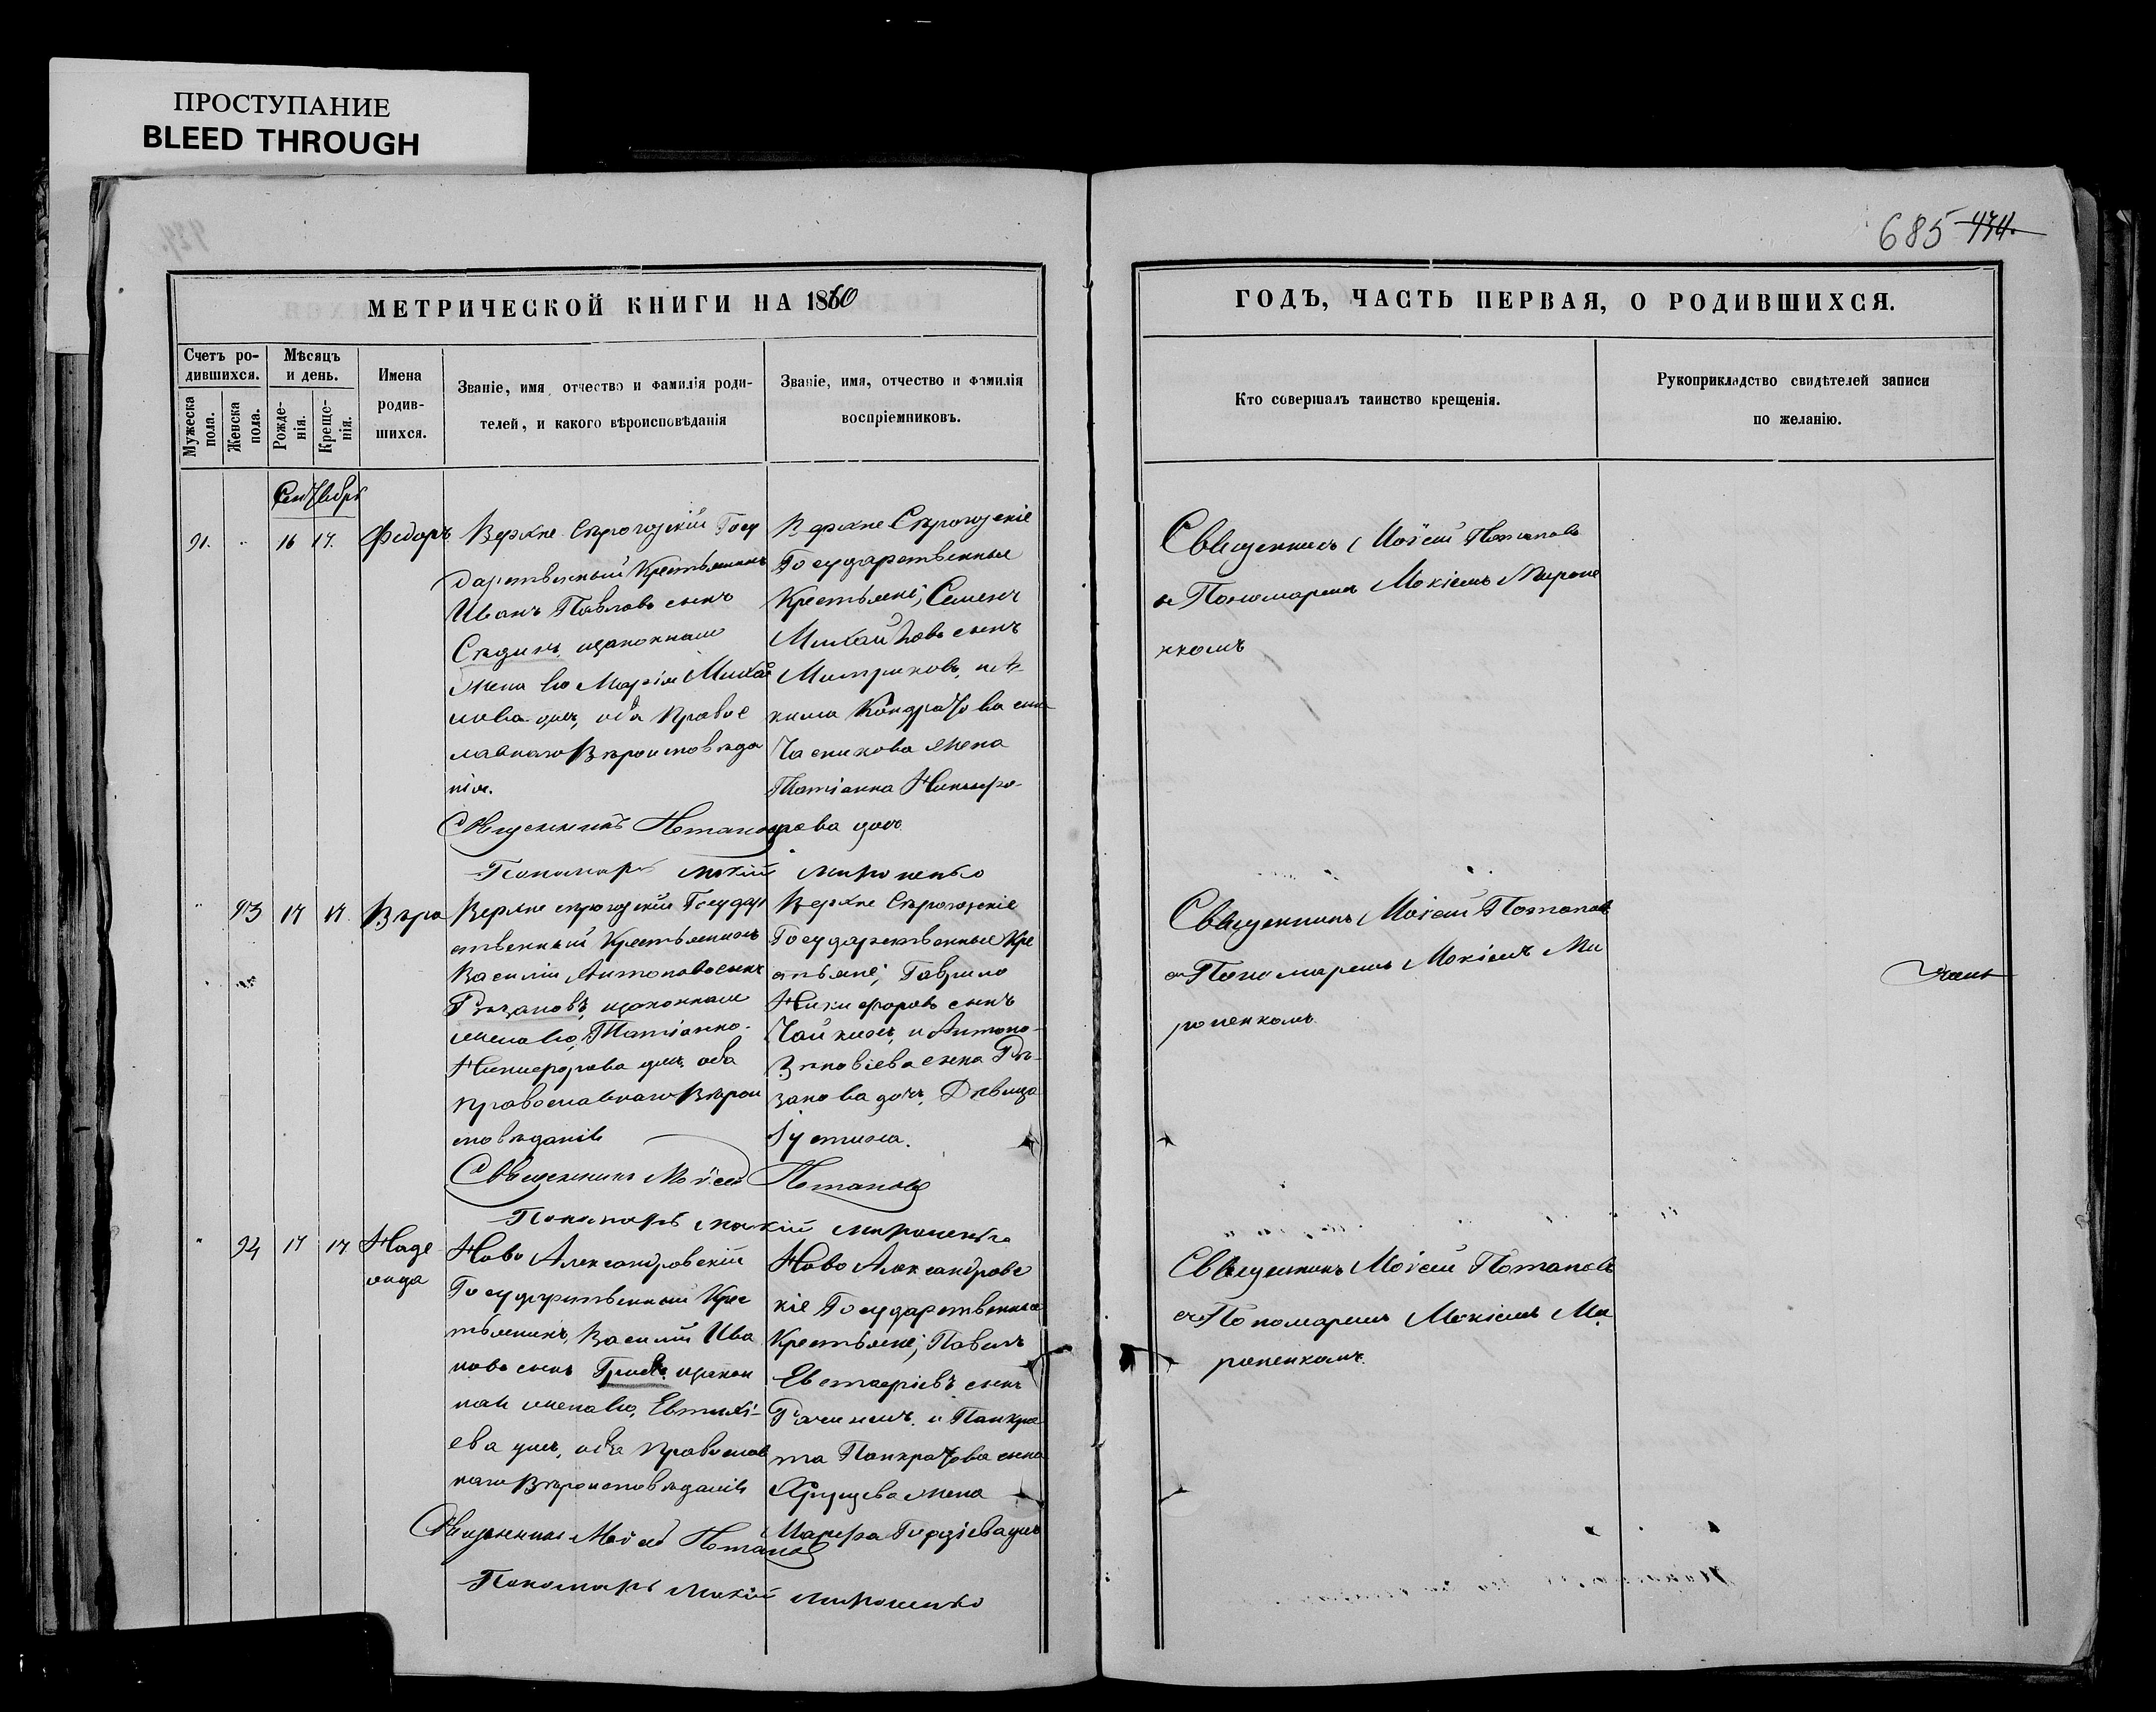 ПРОСТУПАНИЕ
BLEED THROUGH
685 434.
МЕТРИЧЕСКОЙ КНИГИ НА 1860
Счетъ ро-
дившихся.
Мужеска
пола.
Женска
пола.
Мѣсяцъ
и день.
Рожде-
нія.
Креще-
нія.
Имена
родив-
шихся.
Званіе, имя, отчество и фамилія роди-
телей, и какого вѣроисповѣданія
Званіе, имя, отчество и фамилія
воспріемниковъ.
ГОДЪ, ЧАСТЬ ПЕРВАЯ, О РОДИВШИХСЯ.
Кто совершалъ таинство крещенія.
Рукоприкладство свидѣтелей записи
по желанію.
Сентябрь
91. 16 17. Федоръ
Верхне Сѣрогозскій Госу
дарственный Крестьянинъ
Иванъ Павловъ сынъ
Сѣдинъ, изаконная
жена его Марія Михай
лова дочь, оба Правос
лавнаго Вѣроисповѣда
нія.
Священникъ Потаповъ
Пономарь Мокій Мироненко
Верхне Сѣрогозскіе
Государственные
Крестьяне, Семенъ
Михайловъ сынъ
Кондратова сына
жена
Татіанна Никифо
рова дочь
Священникъ Моісей Потаповъ
съ Пономаремъ Мокіемъ Мироне
нкомъ
93 17 17 Вѣра
Верхне сѣрогозскій Государ
ственный Крестьянинъ
Василій Антоновъ сынъ
Рѣзановъ, изаконная
жена его, Татіанна
Никифорова дочь, оба
православнаго Вѣрои
сповѣданія
Священникъ Моісей Потаповъ
Пономарь Мокій Мироненко
Верхне Сѣрогозскіе
Государственные Кре
стьяне, Гаврило
Никифоровъ сынъ
Чайкинъ, и Антона
Зиновіева сына Рѣ-
занова дочь, Дѣвица
Іустина.
Священникъ Моісей Потаповъ
съ Пономаремъ Мокіемъ Ми
роненкомъ
94 17 17 Наде
жда
Ново Александровскій
Государственный Крес
тьянинъ, Василій Ива
новъ сынъ изакон
ная жена его, Евтихі-
ева дочь, оба Православ
наго Вѣроисповѣданія
Священникъ Моісей Потаповъ
Пономарь Мокій Мироненко
Ново Александровс
кіе Государственные
Крестьяне, Павелъ
Евстафіевъ сынъ
и Панкра
та Панкратова сына
Хрущева жена
Марѳа Гордіева дочь
Священникъ Моісей Потаповъ
съ Пономаремъ Мокіемъ Ми
роненкомъ